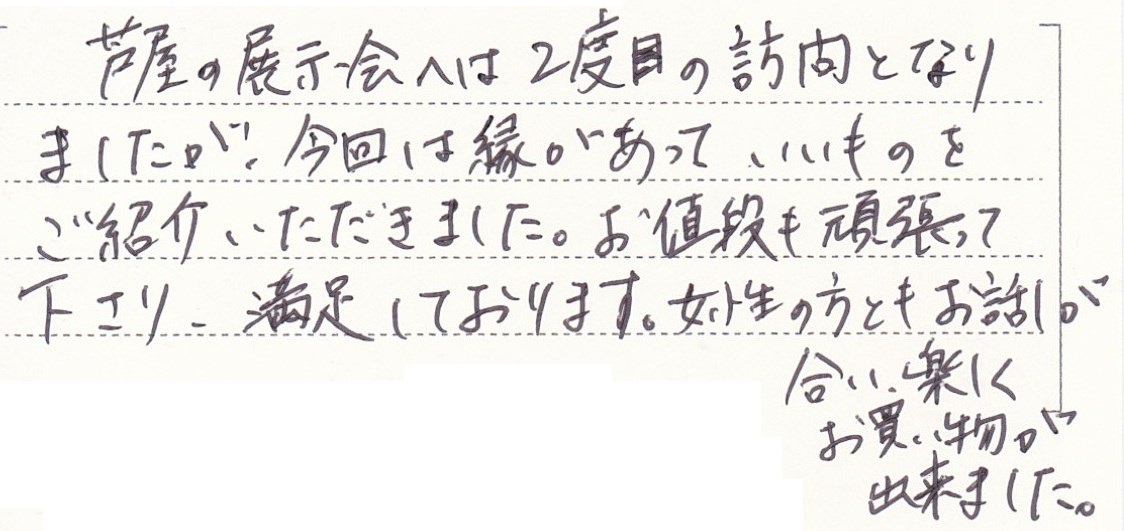 芦屋の展示会へは2度目の訪問となり
ましたが、今回は縁があって、いいものを
ご紹介いただきました。お値段も頑張って
下さり、満足しております。女性の方ともお話しが
合い、楽しく
お買い物が
出来ました。